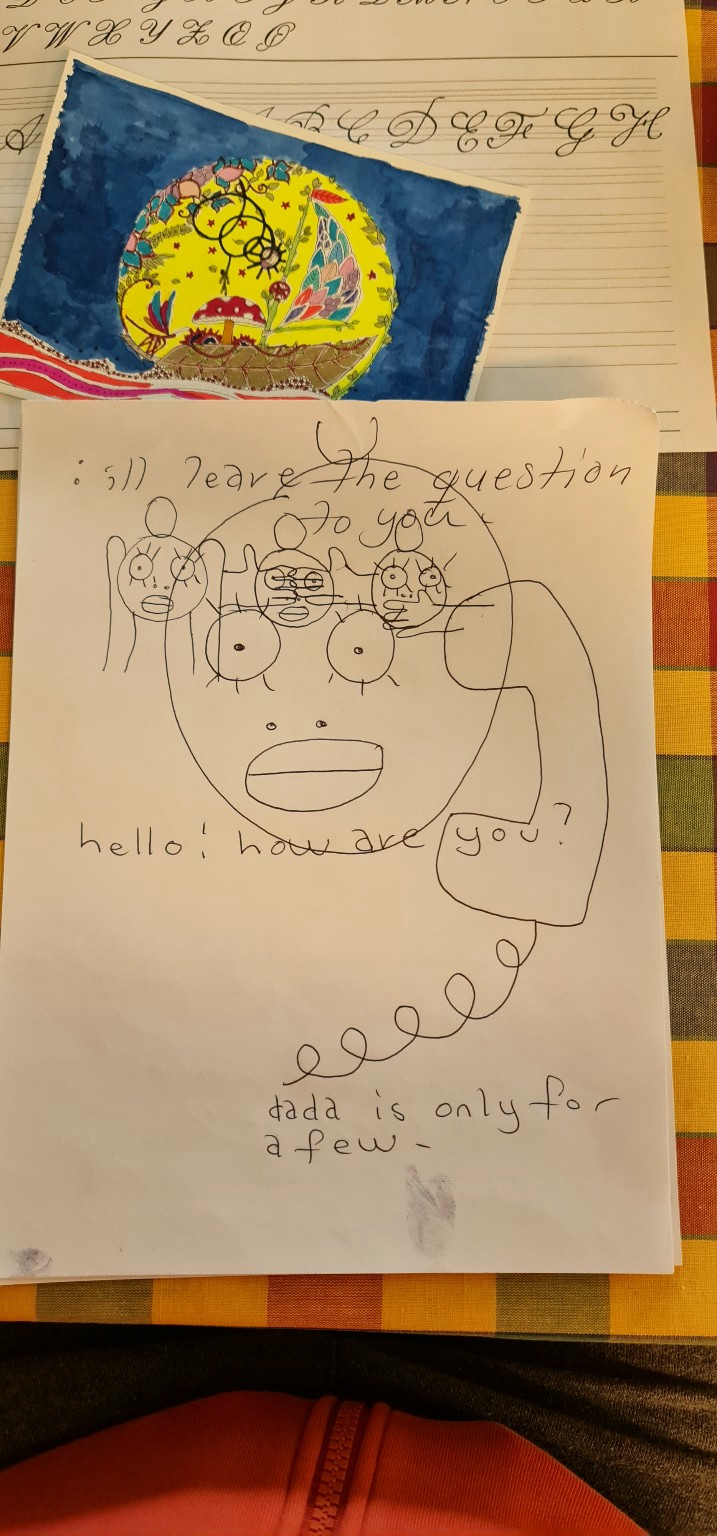 N W X Y Z O P
A B C D E F G H
: ill leave the question
to you.
hello! how are you?
dada is only for
a few-